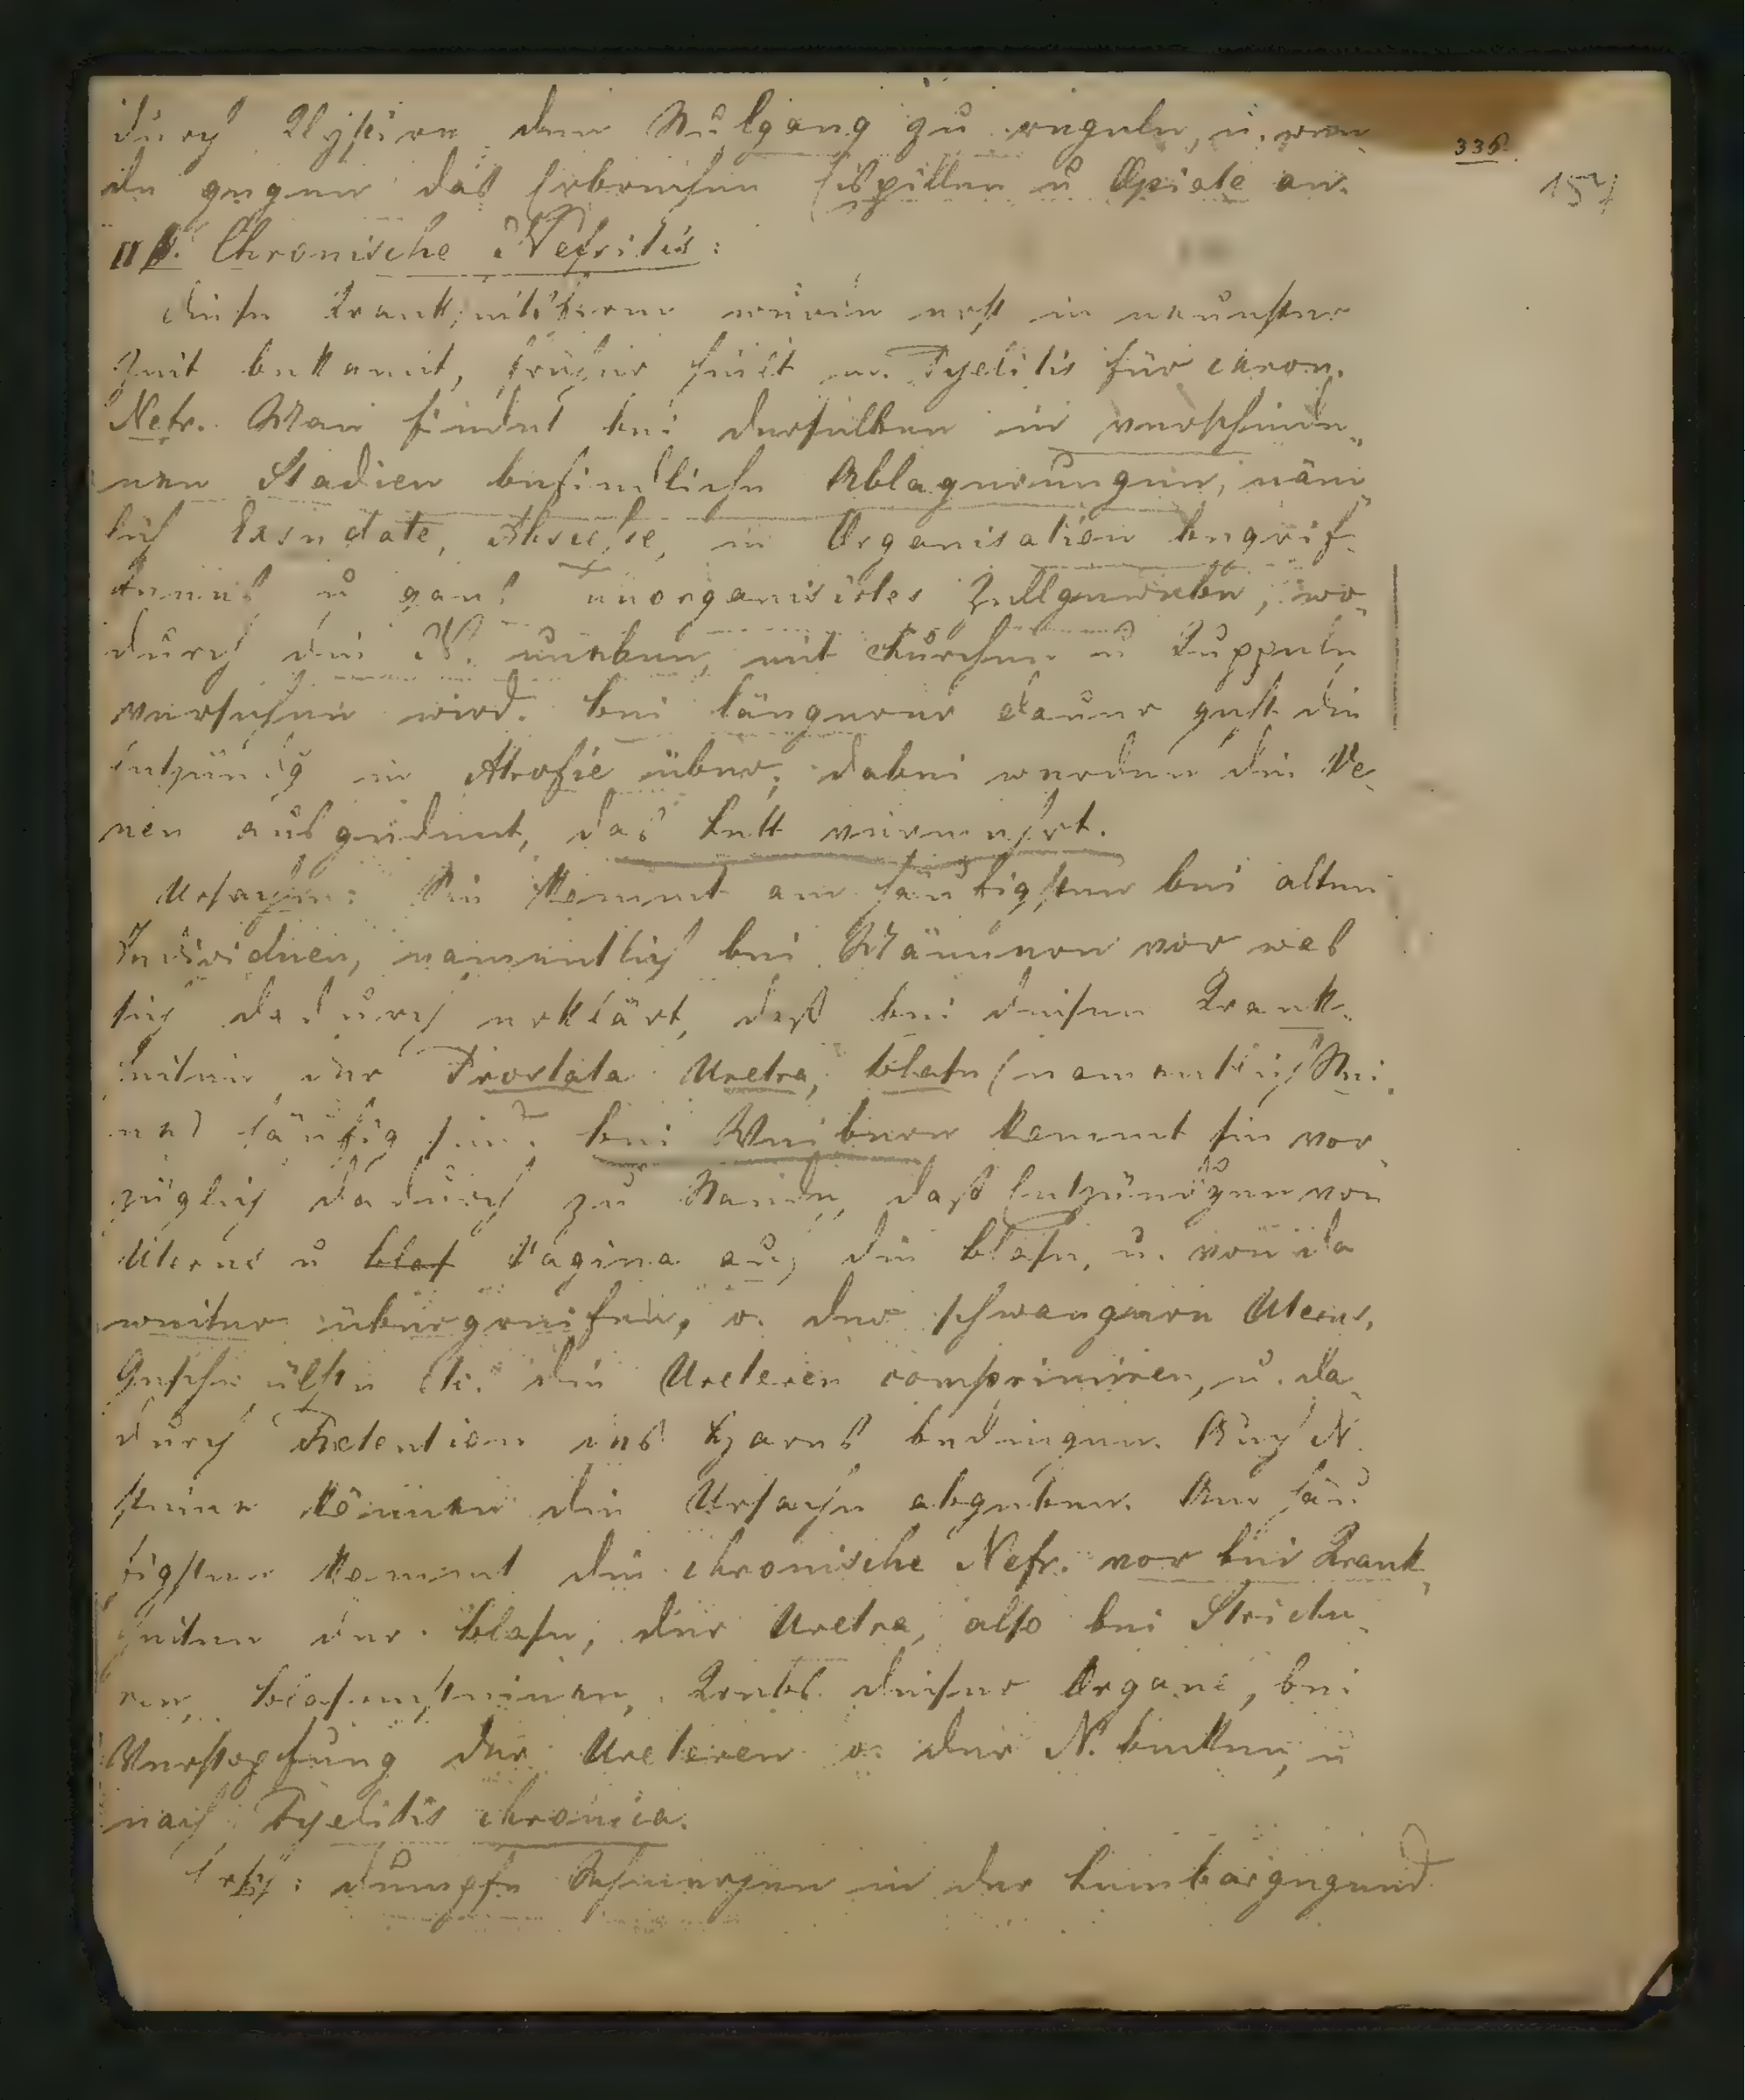 durch Klystire den Stulgang zu regeln, u. wen„
de gegen das Erbrechen Eispillen u Opiate an.
336.
157
II. Chronische Nefritis:
Diese Krankheitsform wurde erst in neuester
Zeit bekannt, früher hielt m. Pyelitis für chron.
Nefr. Man findet bei derselben in verschiede„
nen Stadien befindliche Ablagerungen, näm„
lich Exsudate, Abscesse, in Organisation begrif„
fenes u ganz unorganisirtes Zellgewebe, wo„
durch die N. uneben, mit Furchen u Kuppeln
versehen wird. bei längerer dauer geht die
Entzündg in Atrofie über, dabei werden die Ve„
nen ausgedent, das Fett vermehrt.
Ursachen: Sie kommt am häufigsten bei alten
Individuen, namentlich bei Männern vor was
sich dadurch erklärt, daß bei diesen Krank„
heiten der Prostata Uretra, blase (namentlich Stei„
ne) häufig sind. bei Weibern kommt sie vor„
züglich dadurch zu Stande, daß Entzündgen von
Uterus u blas Vagina auf die blase, u. von da
weiter übergreifen, o. der schwangere Uterus,
Geschwülste etc. die Ureteren comprimiren, u. da„
durch Retention des Harns bedingen. Auch N.
steine können die Ursache abgeben. Am häu„
figsten kommt die chronische Nefr. vor bei Krank„
heiten der blase, der Uretra, also bei Strictu„
ren, blasensteinen, Krebs dieser Organe, bei
Verstopfung der Ureteren o. der N. becken, u
nach Pyelitis chronica.
Ersch: dumpfe Schmerzen in der Lumbargegend